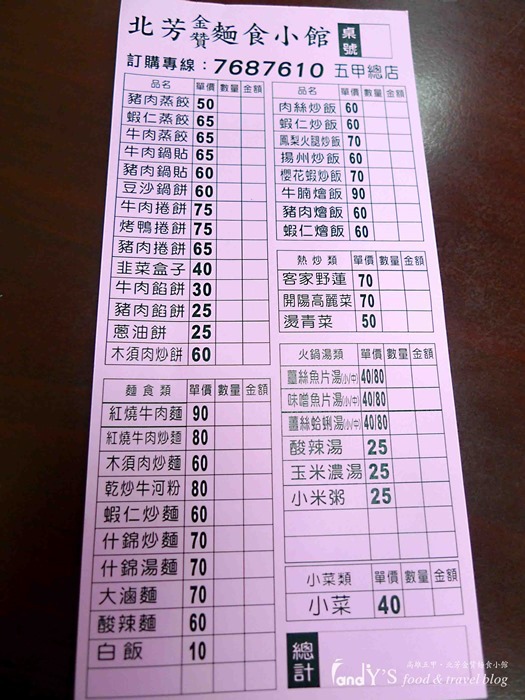 北芳金贊麵食小館 桌號
訂購專線：7687610 五甲總店
品名 單價 數量 金額
豬肉蒸餃 50
蝦仁蒸餃 65
牛肉蒸餃 65
牛肉鍋貼 65
豬肉鍋貼 60
豆沙鍋餅 60
牛肉捲餅 75
烤鴨捲餅 75
豬肉捲餅 65
韭菜盒子 40
牛肉餡餅 30
豬肉餡餅 25
蔥油餅 25
木須肉炒餅 60
麵食類 單價 數量 金額
紅燒牛肉麵 90
紅燒牛肉炒麵 80
木須肉炒麵 60
乾炒牛河粉 80
蝦仁炒麵 60
什錦炒麵 70
什錦湯麵 70
大滷麵 70
酸辣麵 60
白飯 10
品名 單價 數量 金額
肉絲炒飯 60
蝦仁炒飯 60
鳳梨火腿炒飯 70
揚州炒飯 60
櫻花蝦炒飯 70
牛腩燴飯 90
豬肉燴飯 60
蝦仁燴飯 60
熱炒類 單價 數量 金額
客家野蓮 70
開陽高麗菜 70
燙青菜 50
火鍋湯類 單價 數量 金額
薑絲魚片湯(小/中) 40/80
味噌魚片湯(小/中) 40/80
薑絲蛤蜊湯(小/中) 40/80
酸辣湯 25
玉米濃湯 25
小米粥 25
小菜類 單價 數量 金額
小菜 40
總計
高雄五甲・北芳金贊麵食小館
andy's food & travel blog